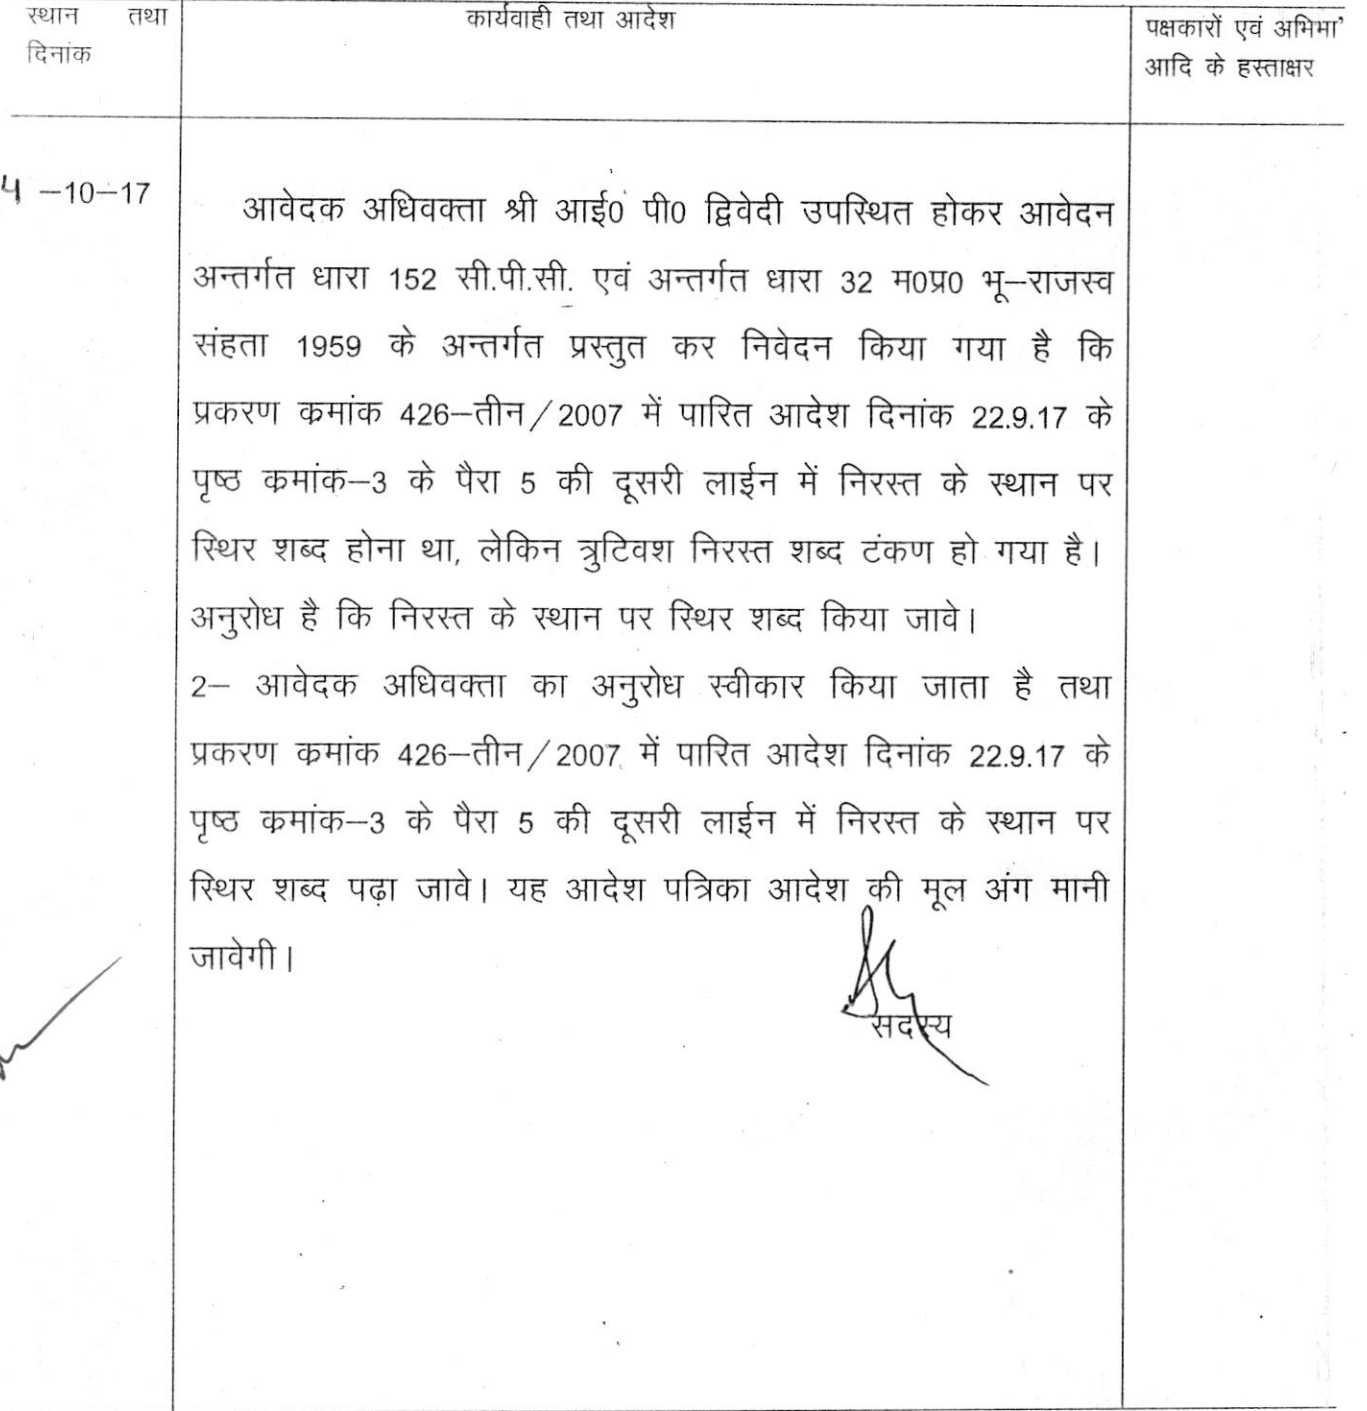 स्थान तथा
दिनांक
कार्यवाही तथा आदेश
पक्षकारों एवं अभिभा'
आदि के हस्ताक्षर
4 –10–17
आवेदक अधिवक्ता श्री आई0 पी0 द्विवेदी उपस्थित होकर आवेदन
अन्तर्गत धारा 152 सी.पी.सी. एवं अन्तर्गत धारा 32 म0प्र0 भू–राजस्व
संहता 1959 के अन्तर्गत प्रस्तुत कर निवेदन किया गया है कि
प्रकरण कमांक 426–तीन/2007 में पारित आदेश दिनांक 22.9.17 के
पृष्ठ कमांक–3 के पैरा 5 की दूसरी लाईन में निरस्त के स्थान पर
स्थिर शब्द होना था, लेकिन त्रुटिवश निरस्त शब्द टंकण हो गया है।
अनुरोध है कि निरस्त के स्थान पर स्थिर शब्द किया जावे।
2– आवेदक अधिवक्ता का अनुरोध स्वीकार किया जाता है तथा
प्रकरण कमांक 426–तीन/2007 में पारित आदेश दिनांक 22.9.17 के
पृष्ठ कमांक–3 के पैरा 5 की दूसरी लाईन में निरस्त के स्थान पर
स्थिर शब्द पढ़ा जावे। यह आदेश पत्रिका आदेश की मूल अंग मानी
जावेगी।
सदस्य